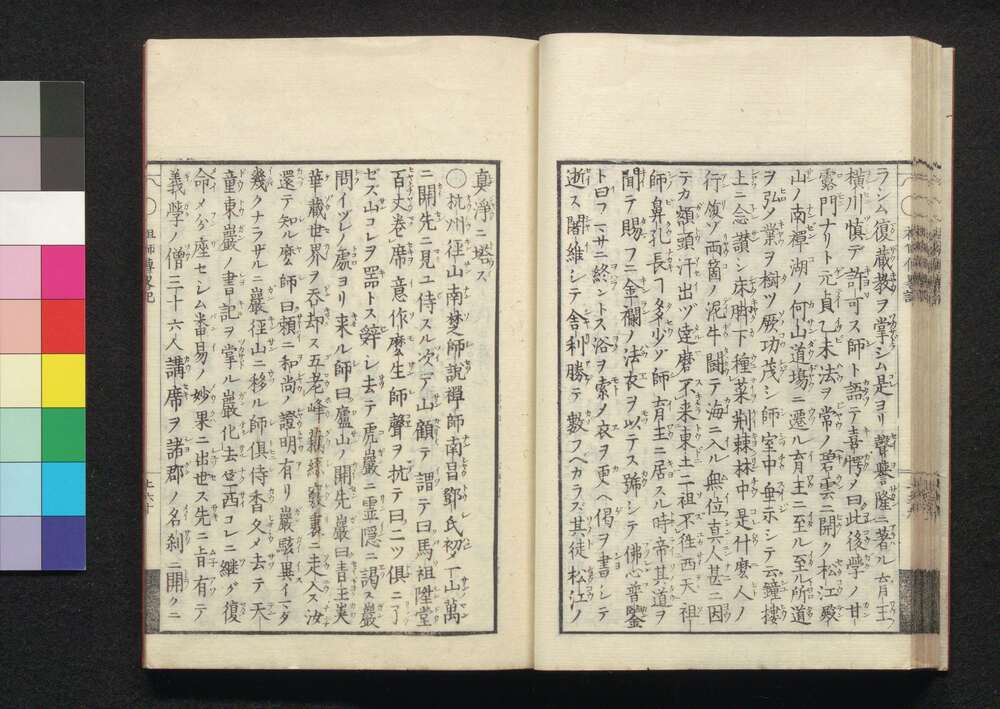 ラシム復藏教ヲ掌シム是ヨリ聲譽隆ニ著ル育王
横川愼テ許可ス師ト語テ喜愕メ曰此後學ノ甘
露門ナリト元貞乙未法ヲ常ノ碧雲ニ開ク松江
山ノ南禪湖ノ何山道場ニ遷ル育王ニ至ル至ル所道
ヲ弘ノ業ヲ樹ツ厥功茂シ師室中垂示シテ云鐘樓
上ニ念讚シ床脚下種菜荆棘林中是什麽人ノ
行履ゾ兩箇ノ泥牛鬪テ海ニ入ル無位真人甚ニ因
テカ額頭汗出ツ達磨不来東土二祖不徃西天祖
師鼻孔長ヿ多少ゾ師育王ニ居スル時帝其道ヲ
聞テ賜フニ金襴ノ法衣ヲ以テス號シテ佛心普鑒
ト曰フマサニ終ントス浴ヲ索メ衣ヲ更ヘ偈ヲ書シテ
逝ス闍維シテ舎利勝テ數フベカラズ其徒松江ノ
真淨ニ塔ス
〇杭州徑山南楚師說禪師南昌鄧氏初メ丁山萬
ニ開先ニ見ユ侍スル次テ山顧テ謂テ曰馬祖陞堂
百丈卷席意作麽生師聲ヲ抗テ曰二ツ俱ニ了
ゼズ山コレヲ噐トス辭シ去テ虎巖ニ靈隱ニ謁ス巖
問イヅレノ處ヨリ来ル師曰廬山ノ開先巖曰青玉峡
華藏世界ヲ呑却ス五老峰ニ走入ス汝
還テ知ル麽師曰賴ニ和尚ノ證明有リ巖駭異イマダ
幾クナラザルニ巖徑山ニ移ル師俱侍香タメ去テ天
童東巖ノ書記ヲ掌ル巖化去西コレニ継グ復
命メ分座セシム番昜ノ妙果ニ出世ス先ニ旨有テ
義學ノ僧三十六人講席ヲ諸郡ノ名刹ニ開クニ